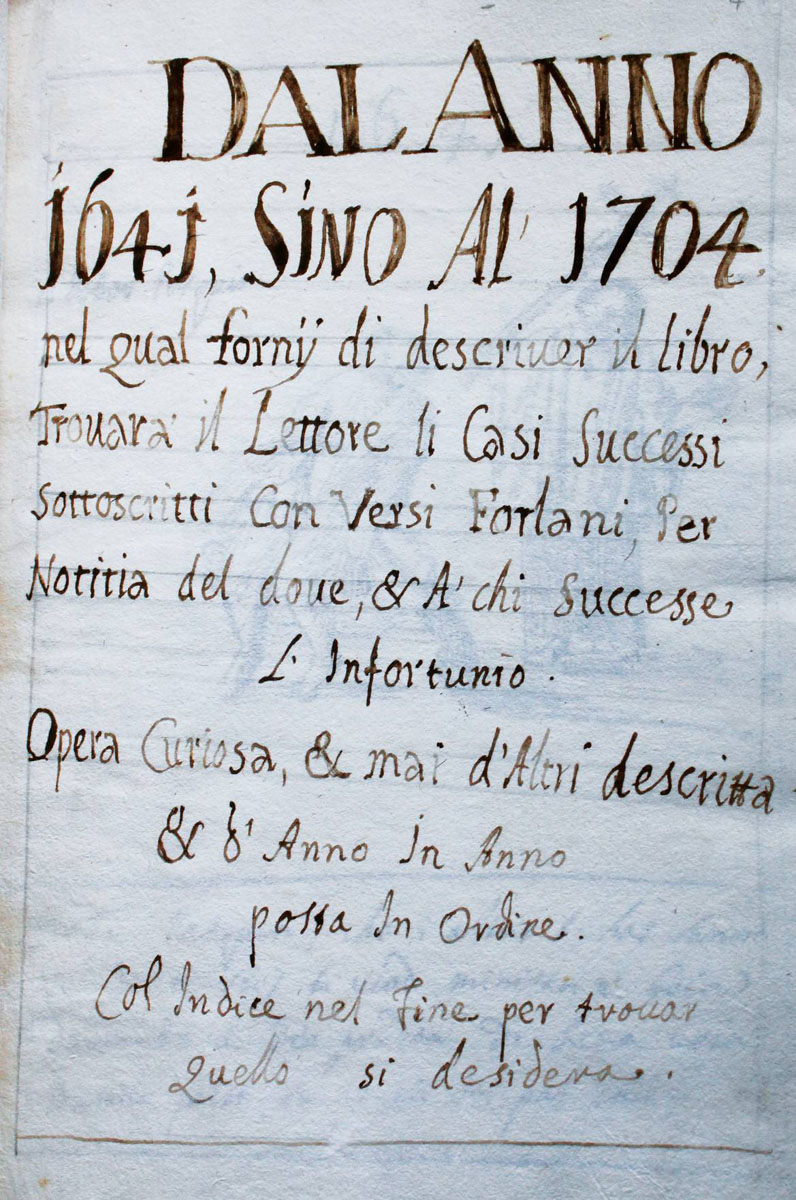 DAL ANNO
1641, SINO AL' 1704.
nel qual fornij di descriuer il libro,
Trouarà il Lettore li Casi Successi
Sottoscritti Con Versi Forlani, Per
Notitia del doue, & A' chi Successe
L' Infortunio.
Opera Curiosa, & mai d'Altri descritta
& d' Anno in Anno
possa In Ordine.
Col Indice nel Fine per trouar
Quello si desidera.